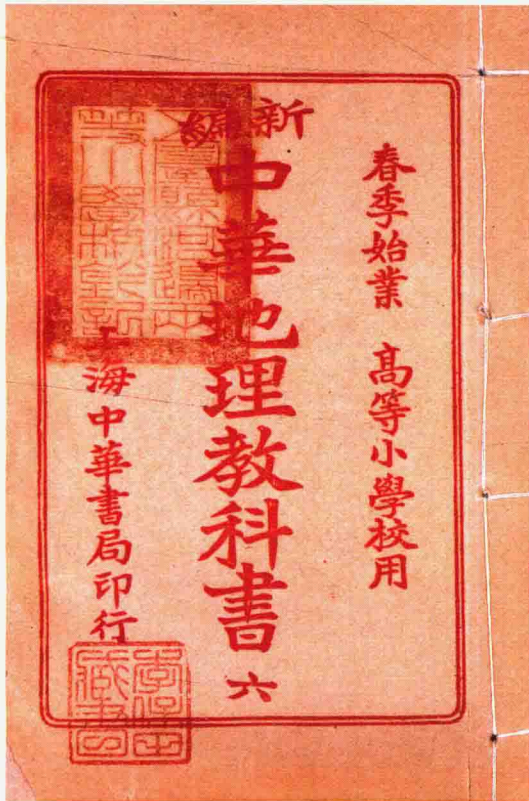 春季始業　高等小學校用
新編
中華地理教科書　六
上海中華書局印行